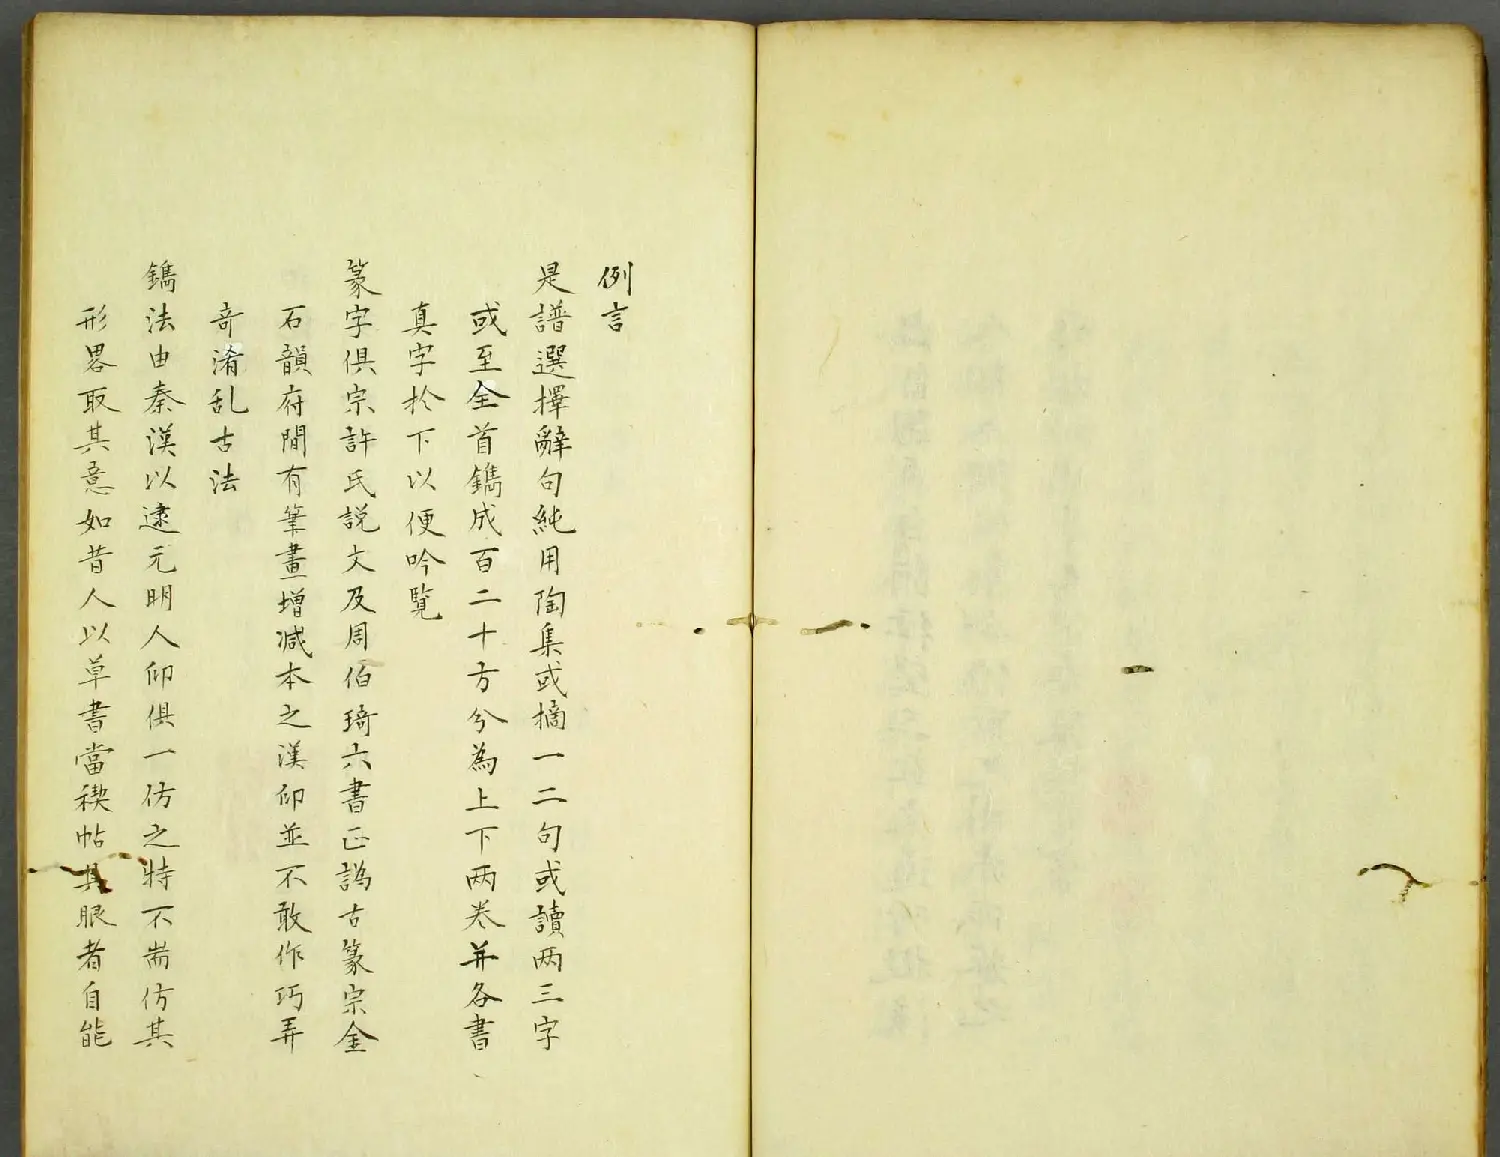 例言
是譜選擇辭句純用陶集或摘一二句或讀两三字
或至全首鐫成百二十方分為上下两卷并各書
真字於下以便吟覧
篆字俱宗許氏説文及周伯琦六書正譌古篆宗金
石韻府間有筆畫增减本之漢印並不敢作巧弄
奇淆乱古法
鐫法由秦漢以逮元明人印俱一仿之特不耑仿其
形畧取其意如昔人以草書當稧帖具眼者自能